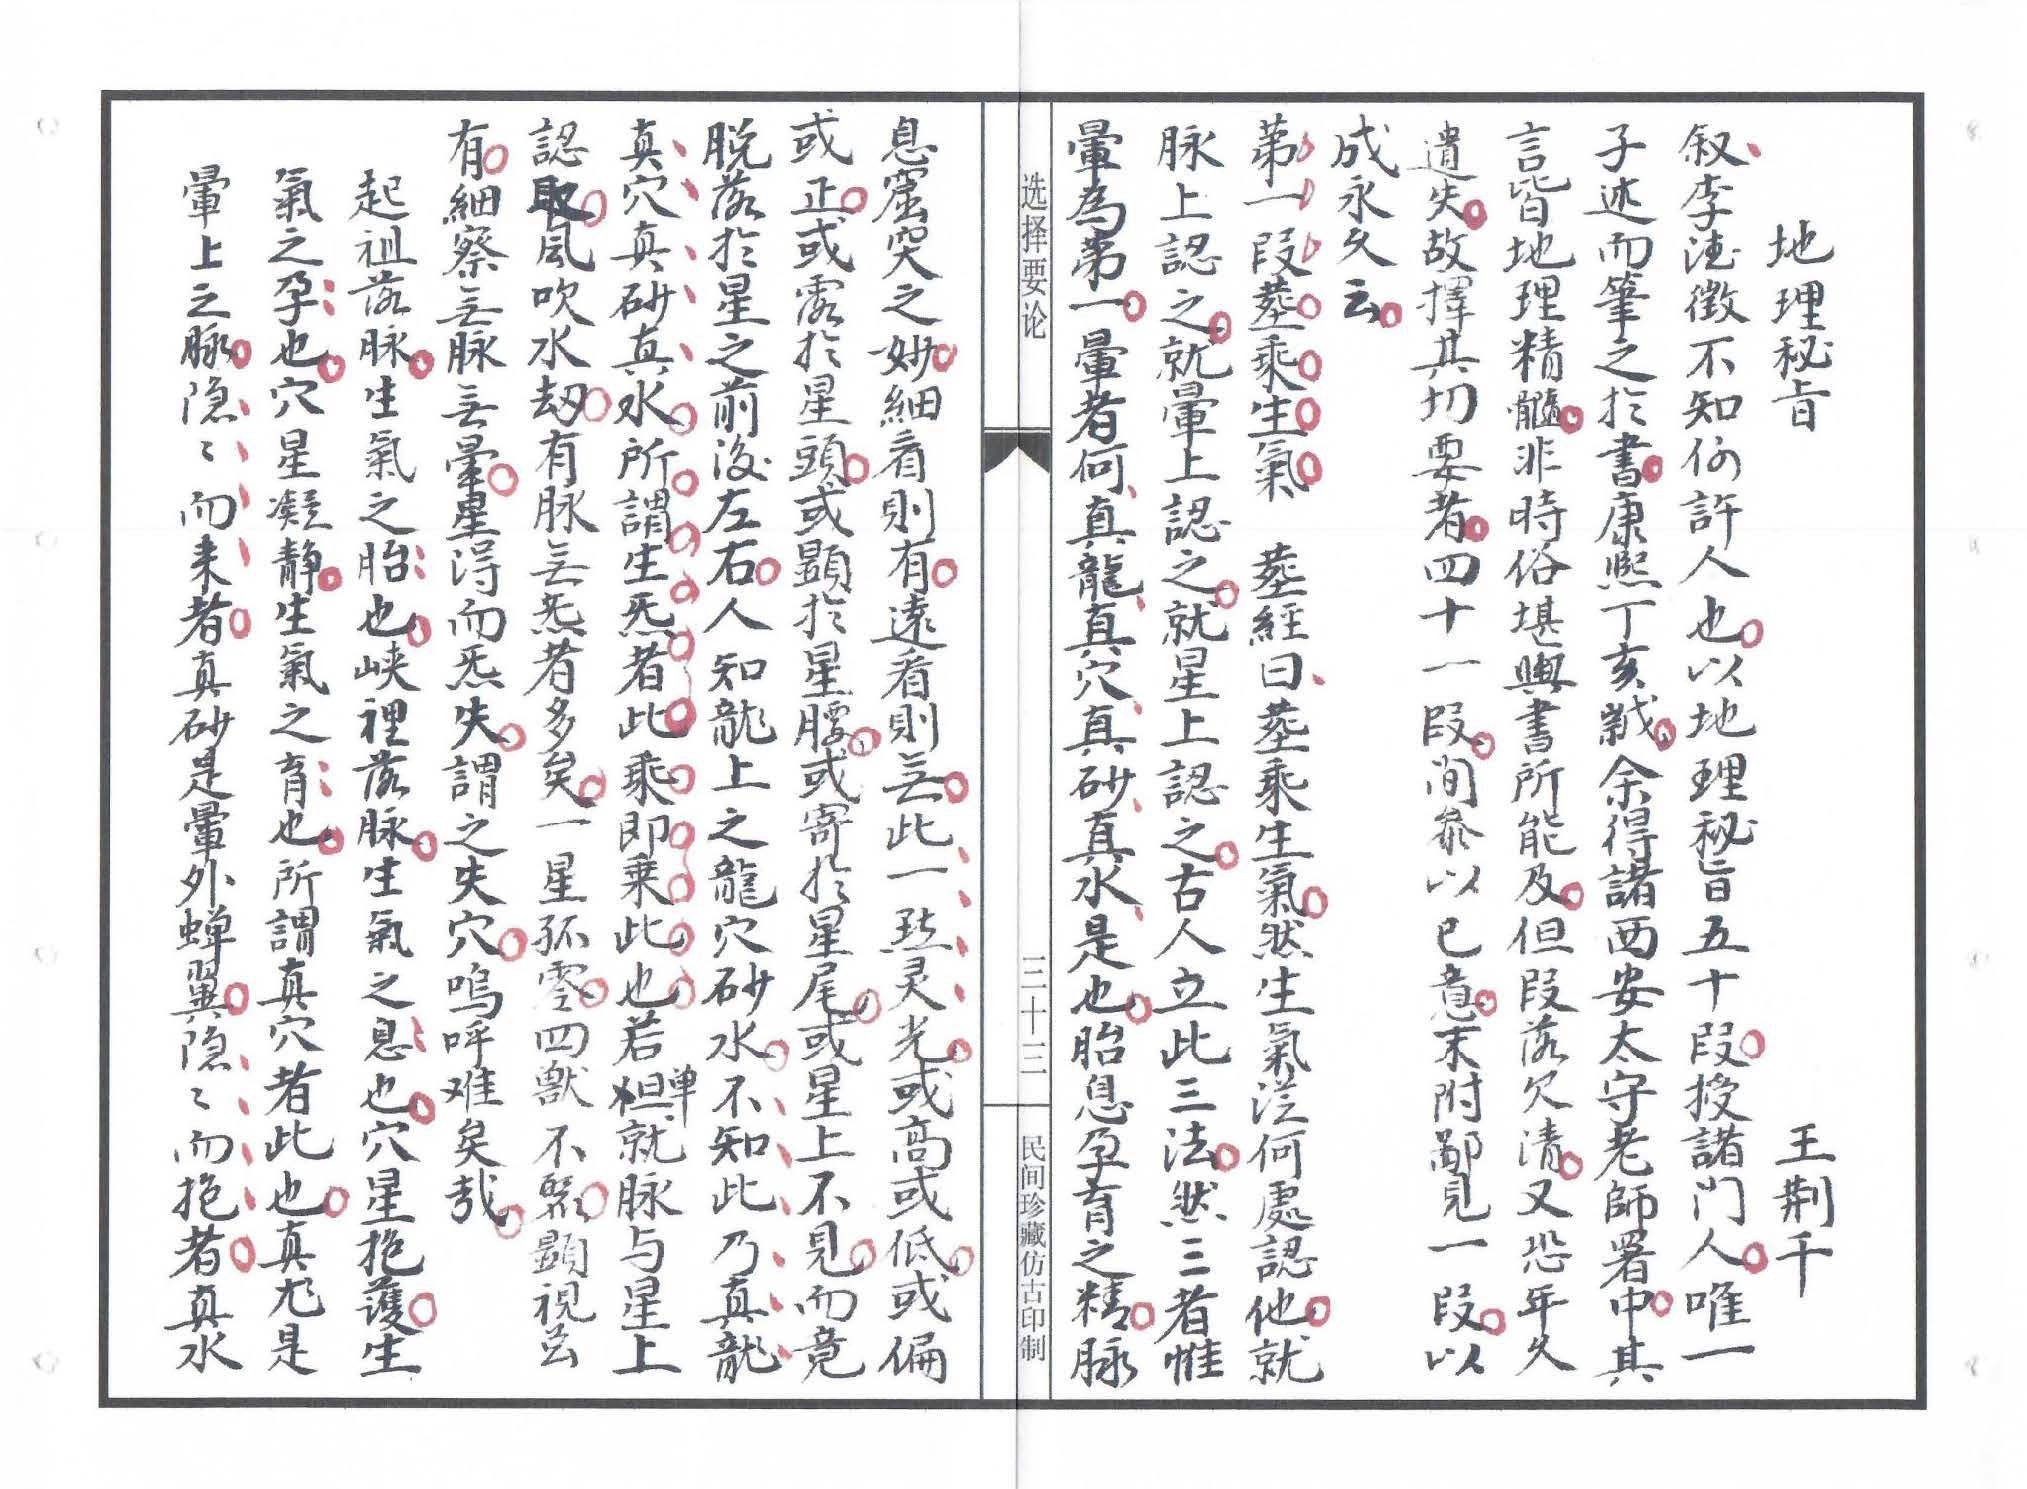 地理秘旨 王荆千
叙李法徵不知何許人也以地理秘旨五十段授諸門人唯一
子述而筆之於書康熙丁亥歲余得諸西安太守老師署中其
言皆地理精髓非時俗堪輿書所能及但段落欠清又恐年久
遺失故擇其切要者四十一段间叅以已意末附鄙見一段以
成永久云
第一段塟乘生氣 塟經曰塟乘生氣然生氣從何處認他就
脉上認之就暈上認之就星上認之古人立此三法然三者惟
暈為第一暈者何真龍真穴真砂真水是也胎息孕育之精脉
选择要论
三十三
民间珍藏仿古印制
息窟突之妙細看則有遠看則无此一點灵光或高或低或偏
或正或露於星頭或顯於星腰或寄於星尾或星上不見而竟
脱落於星之前後左右人知龍上之龍穴砂水不知此乃真龍
真穴真砂真水所謂生炁者此乘即乗此也若单就脉与星上
認取風吹水劫有脉无炁者多矣一星孤零四獸不緊顯視云
有細察无脉无暈星得而炁失謂之失穴嗚呼难矣哉
起祖落脉生氣之胎也峡裡落脉生氣之息也穴星抱護生
氣之孕也穴星凝静生氣之育也所謂真穴者此也真龙是
暈上之脉隐々而来者真砂是暈外蝉翼隐々而抱者真水